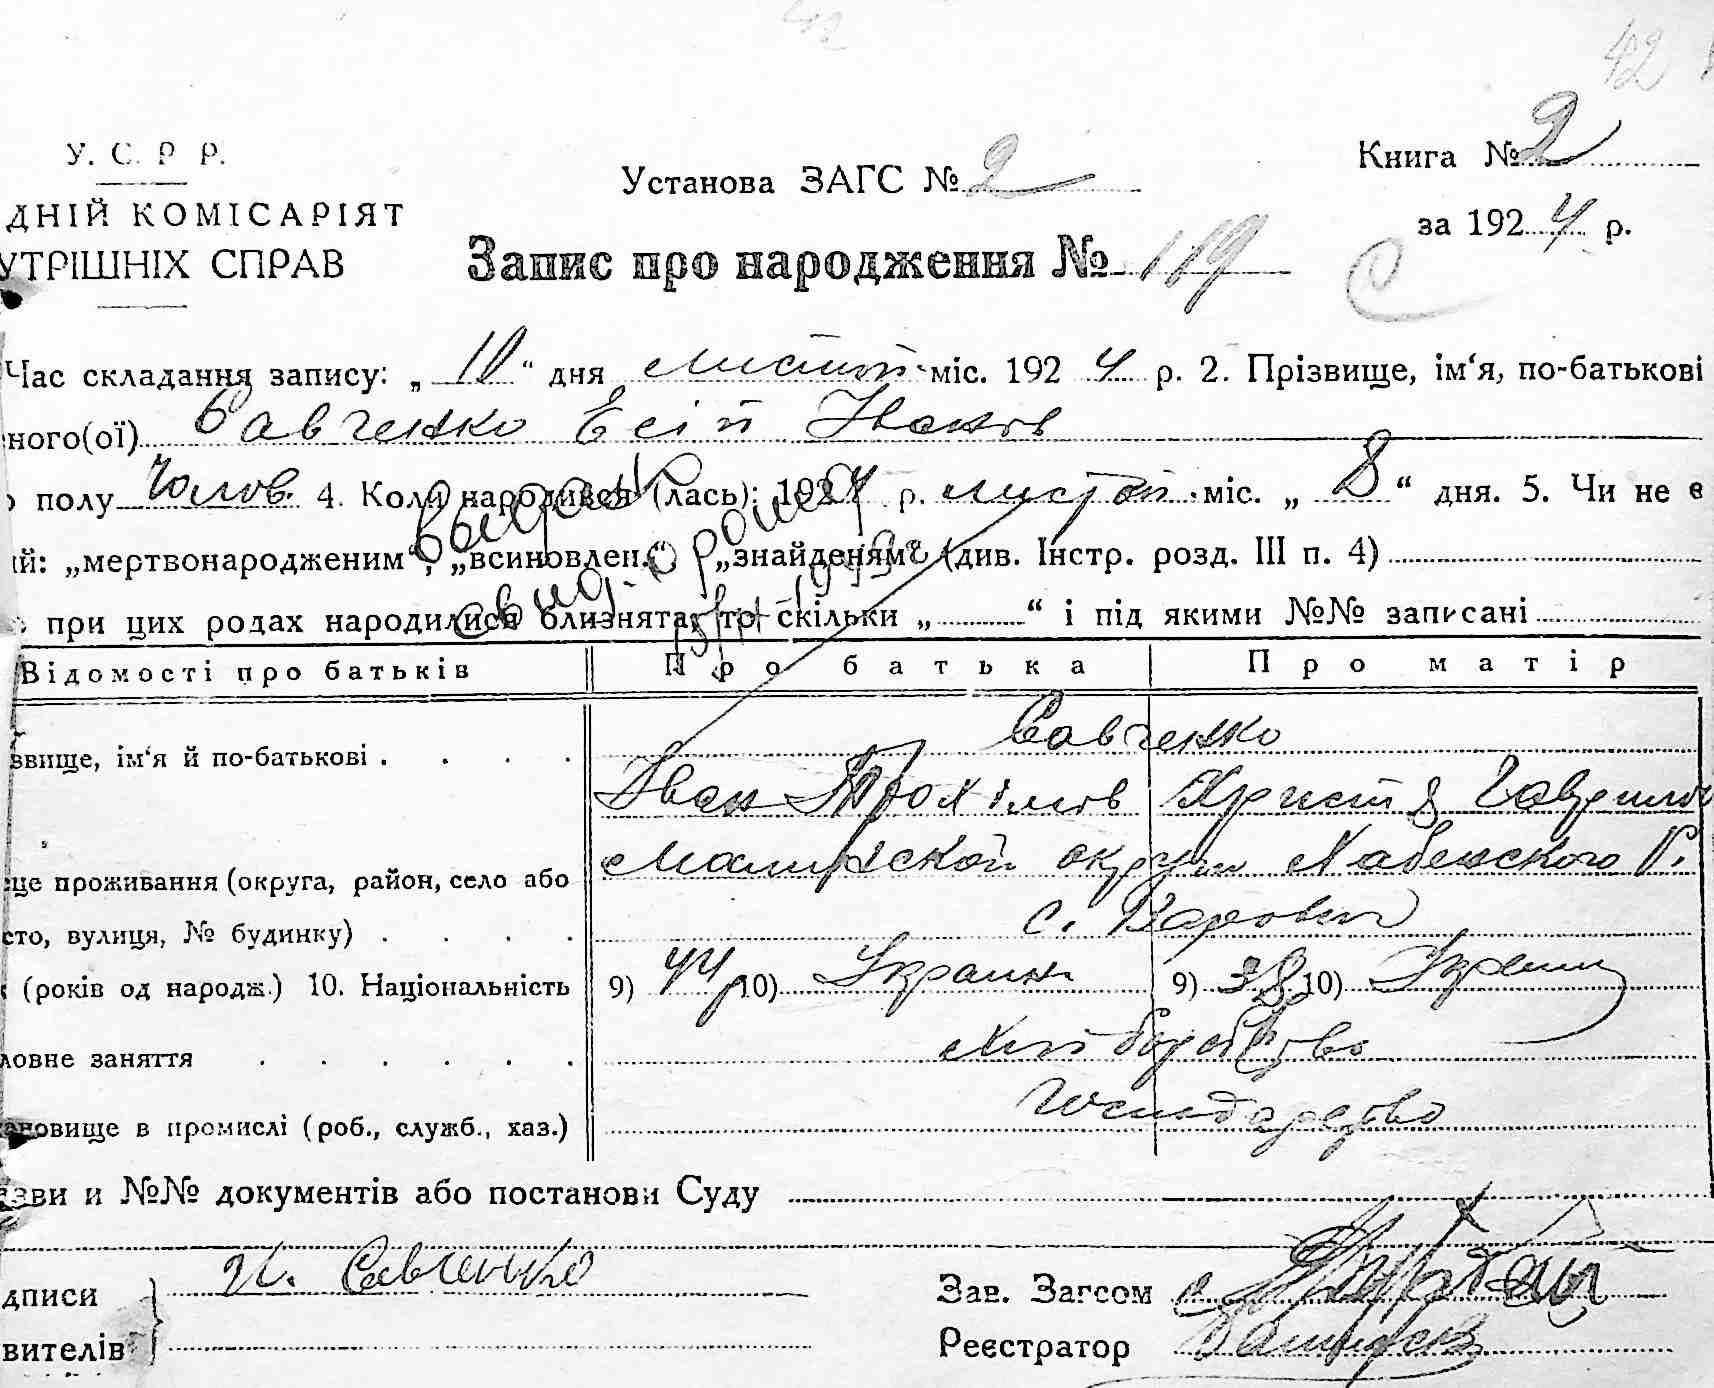 42
У. С. Р. Р.
ДНІЙ КОМІСАРІЯТ
УТРІШНІХ СПРАВ
Установа ЗАГС № 2
Книга № 2
за 1924 р.
Запис про народження № 119
С
Час складання запису: „ 10 “ дня листоп. міс. 1924 р. 2. Прізвище, ім‘я, по-батькові
ного(ої) Савченко Есій Іванов
полу Чолов. 4. Коли народився (лась): 1924 р. листоп. міс. „ 8 “ дня. 5. Чи не є
ий: „мертвонародженим“, „всиновлен.“, „знайденям“ (див. Інстр. розд. III п. 4)
при цих родах народилися близнята, то скільки „ “ і під якими №№ записані
Відомості про батьків Про батька Про матір
звище, ім‘я й по-батькові . . . . Савченко
Іван Трохимов Христ Гаврилов
це проживання (округа, район, село або Малинской округи Хабенского Р.
сто, вулиця, № будинку) . . . . с. Варовичі
(років од народж.) 10. Національність 9) 44 10) Украин 9) 38 10) Украин
ловне заняття . . . . . . Хліборобство
ановище в промислі (роб., служб., хаз.) Господарство
зви и №№ документів або постанови Суду
дписи И. Савченко
вителів
Зав. Загсом
Реєстратор